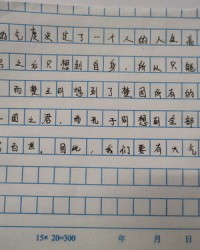 的气度决定了一个人的人生高
只想到自身,所以只能
而楚王则想到了楚国所有的
一国之君,而孔子则想到全部
因此,我们要有大气
15×20=300 年 月 日